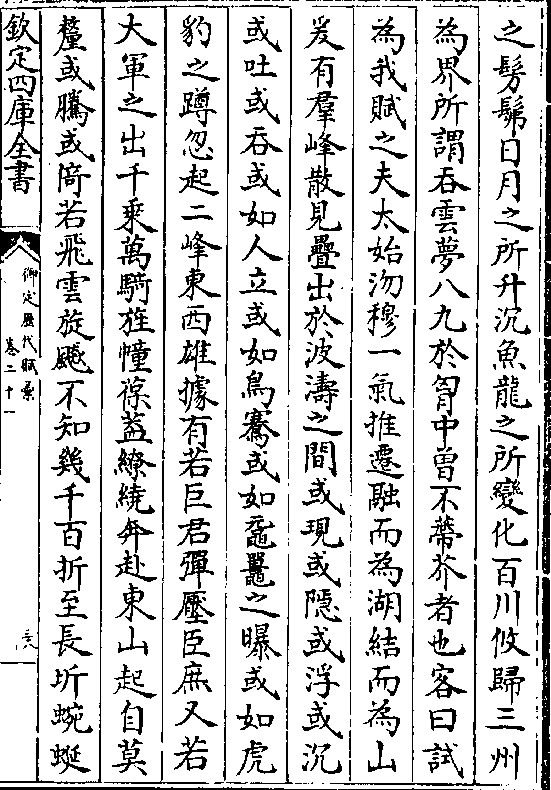 之髣髴日月之所升沉魚龍之所變化百川攸歸三州
為界所謂吞雲夢八九於胷中曽不蔕芥者也客曰試
為我賦之夫太始沕穆一氣推遷融而為湖結而為山
爰有羣峰散見疊出於波濤之間或現或隠或浮或沉
或吐或吞或如人立或如鳥騫或如黿鼉之曝或如虎
豹之蹲忽起二峰東西雄據有若巨君彈壓臣庶又若
大軍之出千乘萬騎旌幢葆葢繚繞奔赴東山起自莫
釐或騰或倚若飛雲旋飈不知幾千百折至長圻蜿蜒
欽定四庫全書
御定歷代賦彙
卷二十一